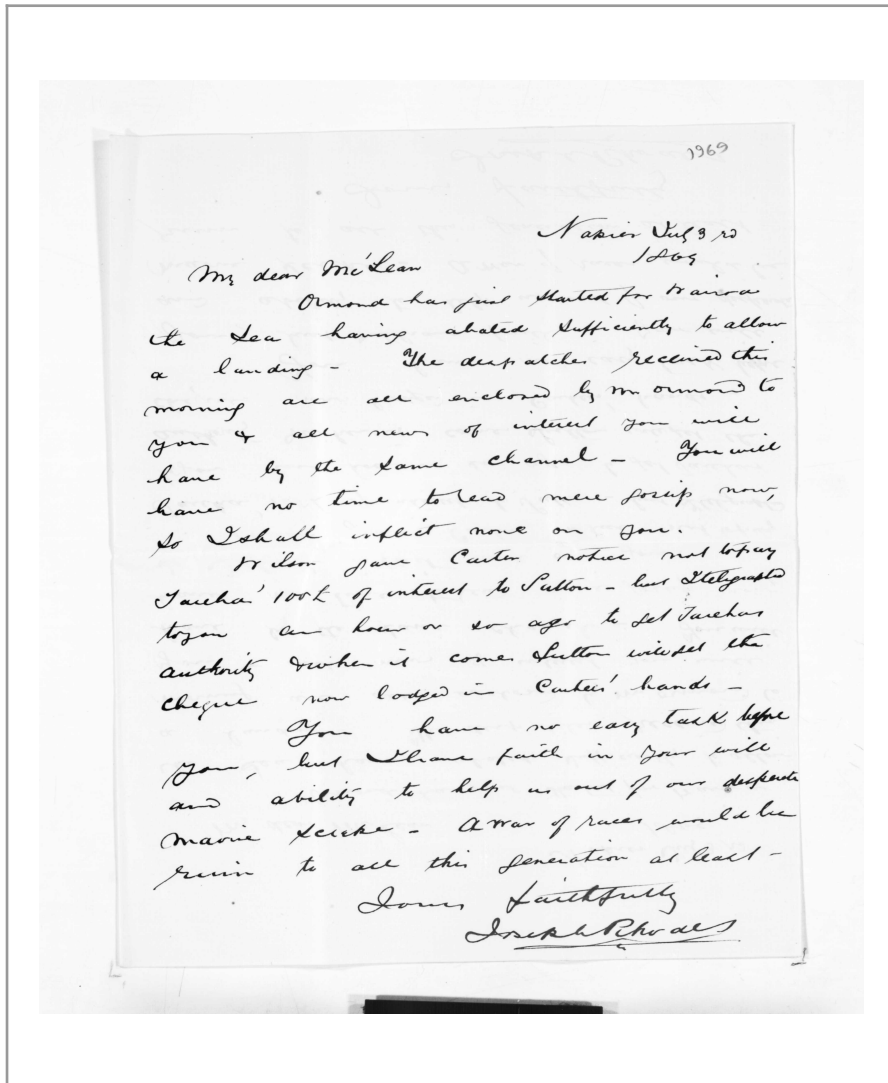 1969
Napier July 3rd
1869
My dear McLean
Ormond has just started for Wairoa
the sea having abated sufficiently to allow
a landing - The despatches received this
morning are all enclosed by Mr Ormond to
you & all news of interest you will
have by the same channel - You will
have no time to read mere gossip now,
so I shall inflict none on you.
Wilson gave Carter notice not to pay
Tareha' 100£ of interest to Sutton - but I telegraphed
to you an hour or so ago to get Tarehas
authority & when it comes Sutton will get the
cheque now lodged in Carters' hands -
You have no easy task before
you, but I have faith in your will
and ability to help us out of our desperate
Maorie - A war of races would be
ruin to all this generation at least -
Yours faithfully
Joseph Rhodes